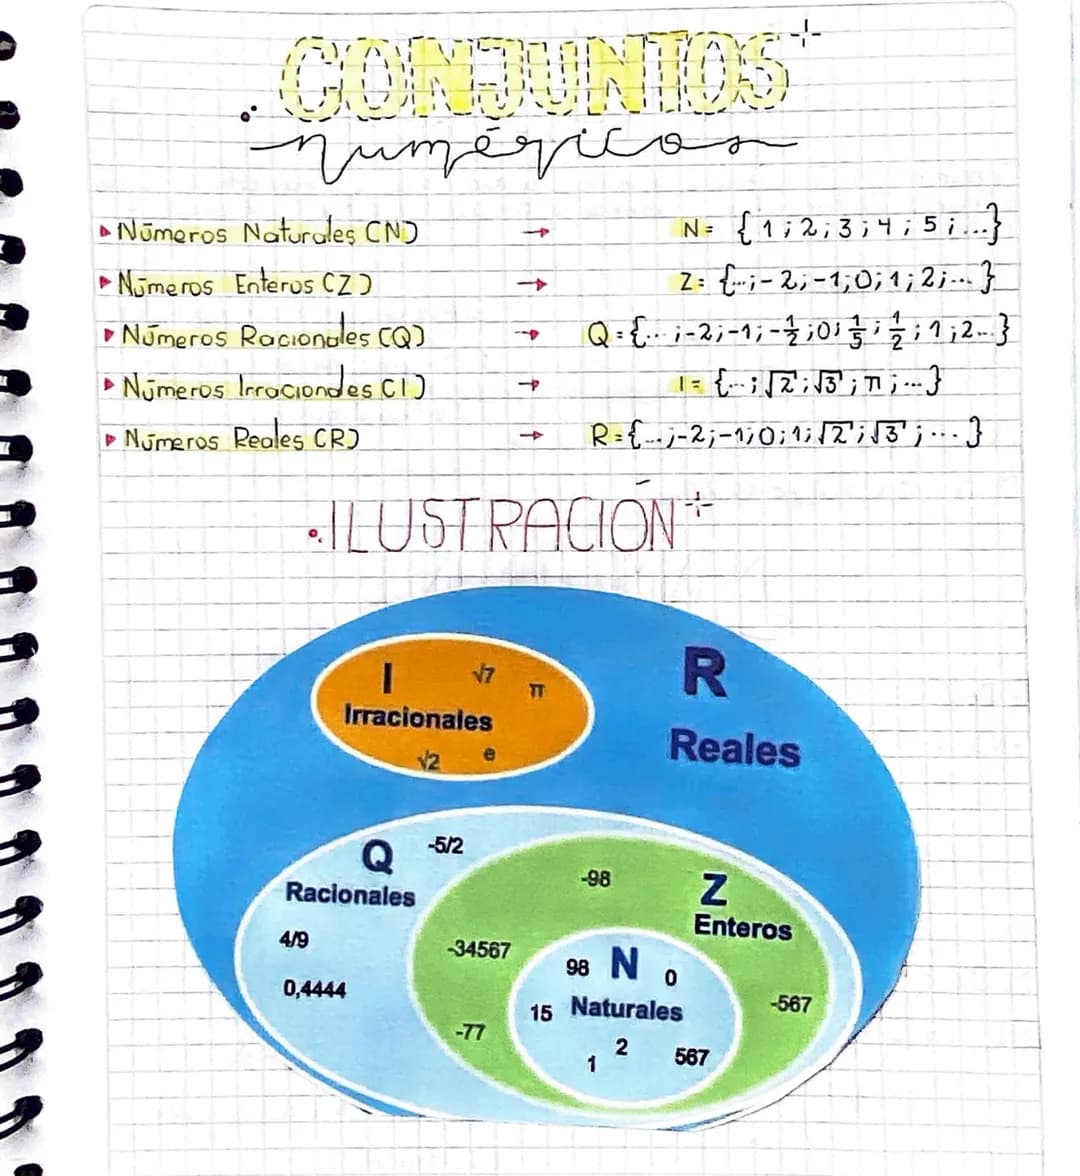 CONJUNTOS
numéricos
Números Naturales (N) → N = {1; 2; 3; 4; 5; ...}
Números Enteros (Z) → Z = {...; -2; -1; 0; 1; 2; ...}
Números Racionales (Q) → Q = {...; -2; -1; -1/2; 0; 1/5; 1/2; 1; 2...}
Números Irraciondes (I) → I = {...; √2; √3; π; ...}
Números Reales (R) → R = {...; -2; -1; 0; 1; √2; √3; ...}
ILUSTRACIÓN
I √7 π
Irracionales
√2 e
R
Reales
Q -5/2
Racionales
4/9
0,4444
-98
Z
Enteros
-34567
-567
-77
98 N 0
15 Naturales
1 2 567